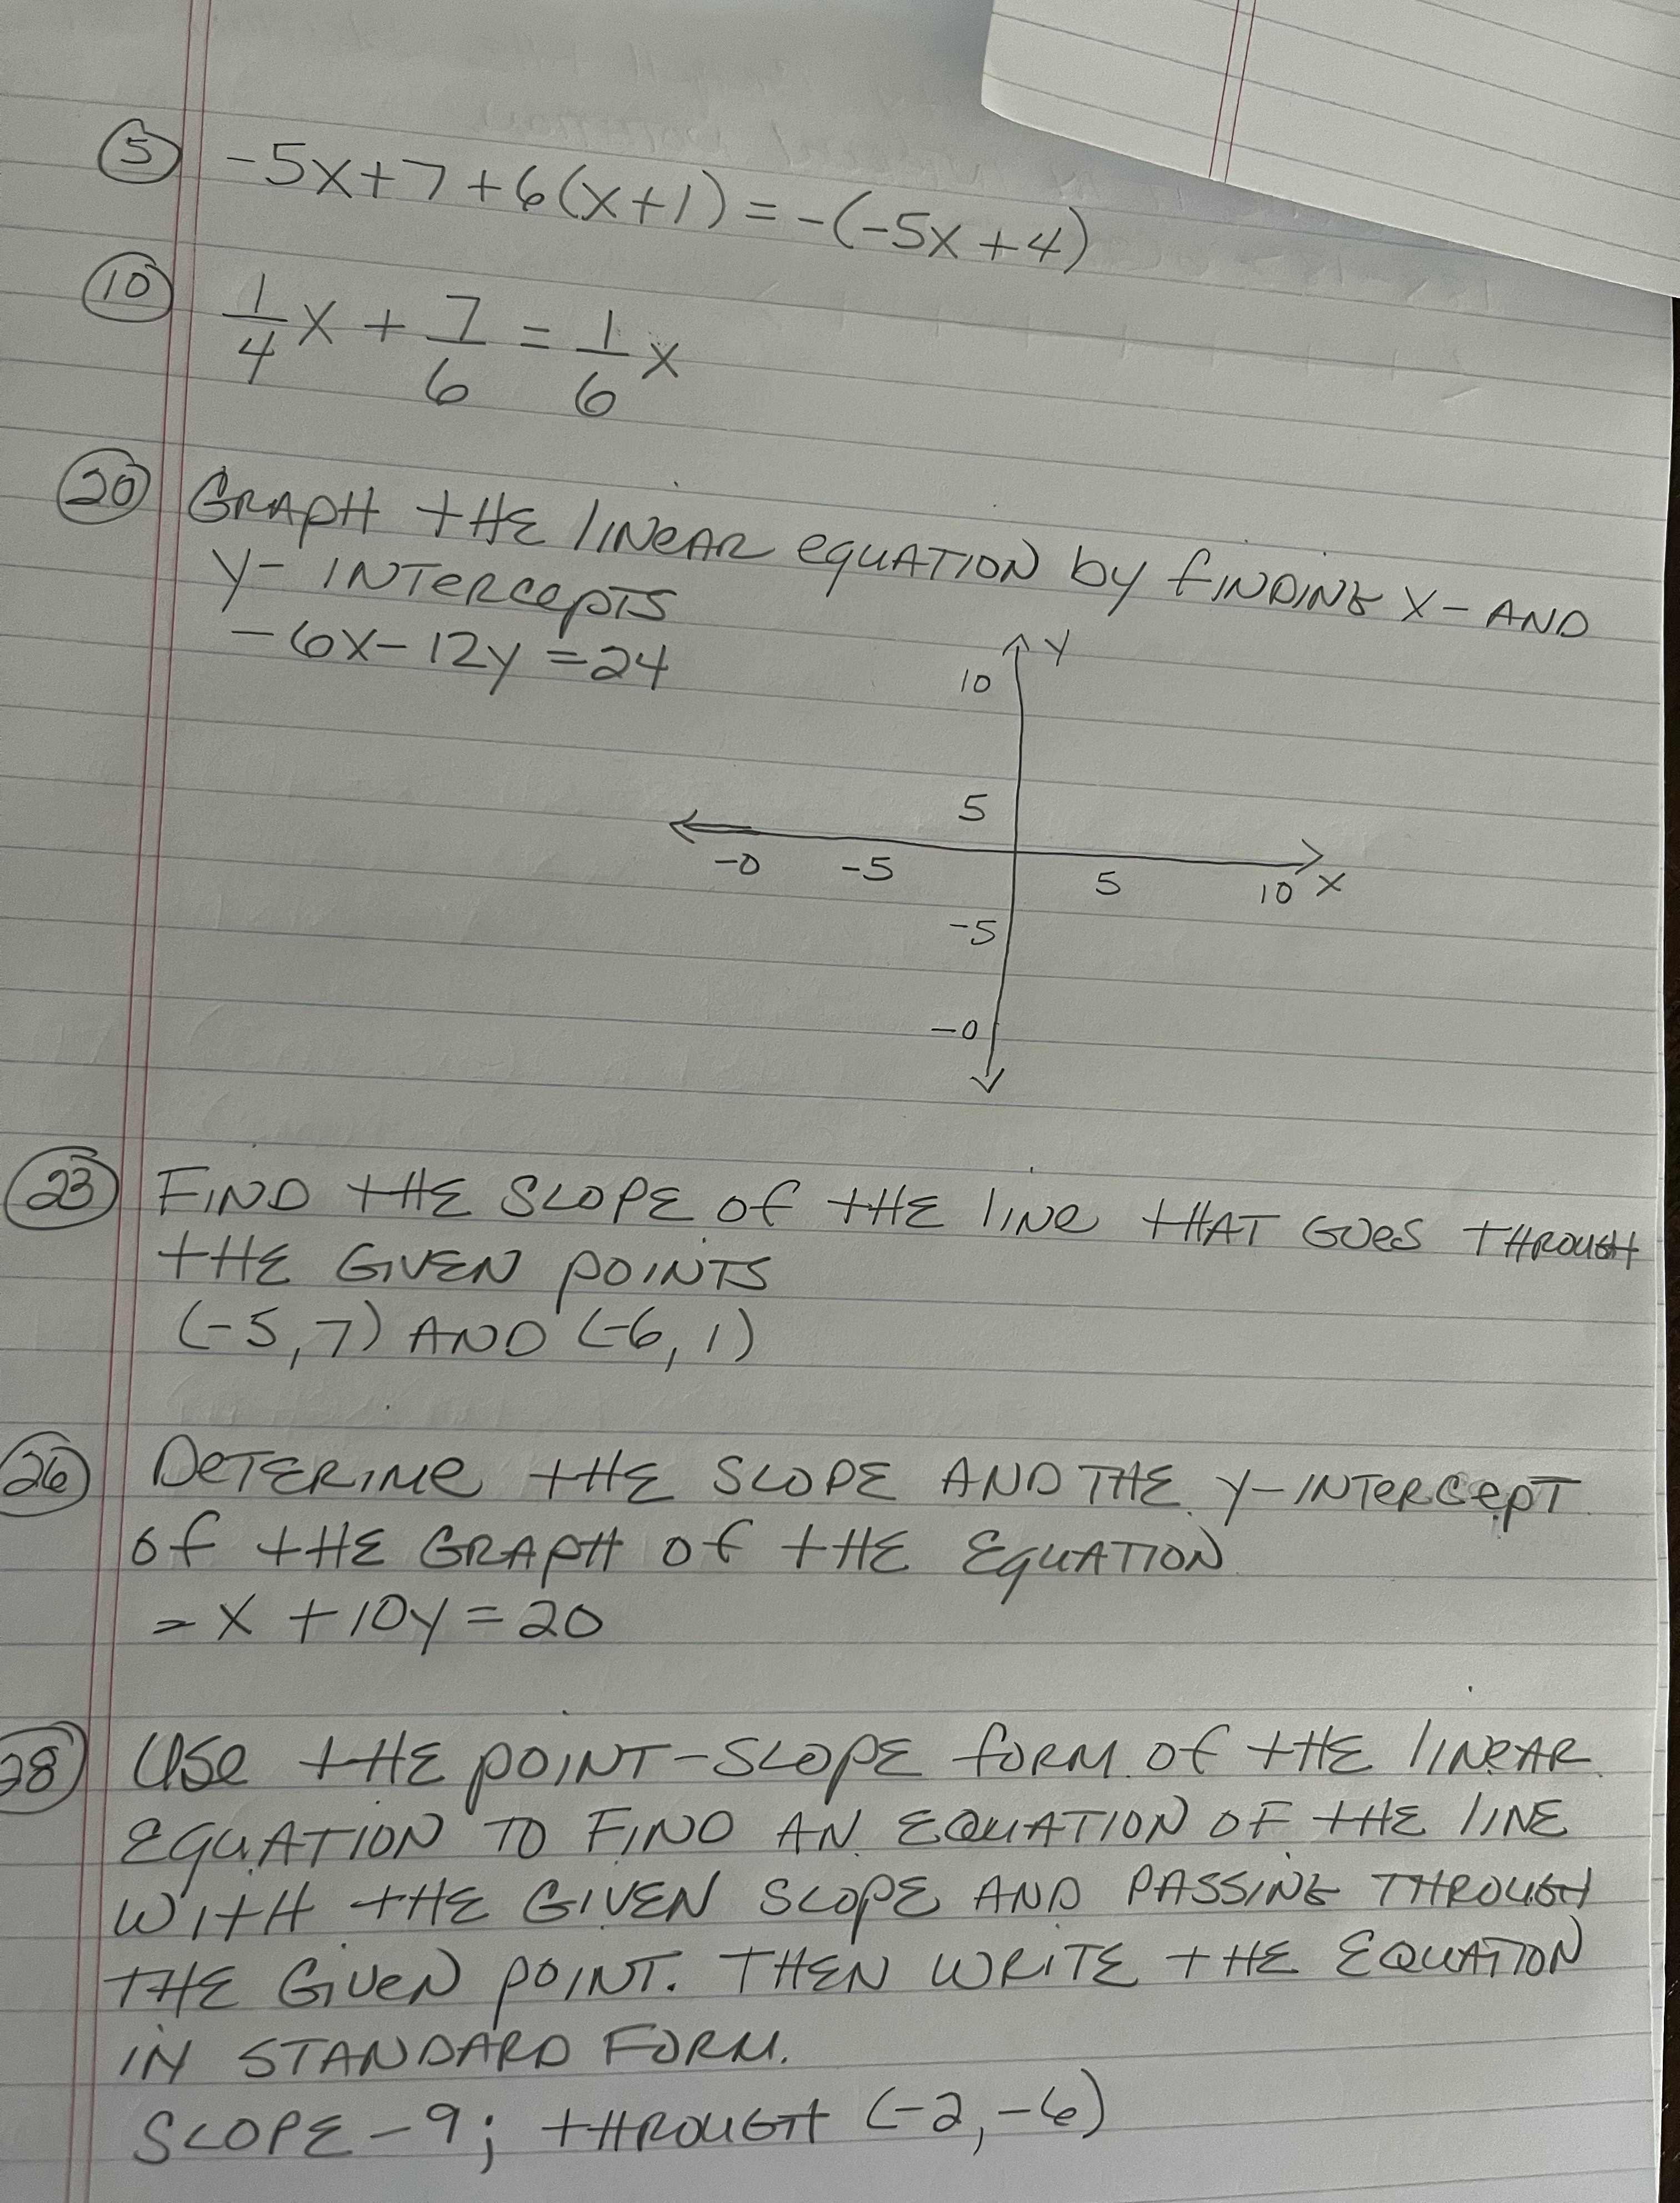 (5) -5x+7+6(x+1)=-(-5x+4)
(10) 1/4 x + 7/6 = 1/6 x
(20) GRAPH THE lINeAR eQUATION by fINDING X- AND
Y- INTERCepTS
-6x-12y=24
Y
10
5
-0 -5 5 10 X
-5
-0
(23) FIND THE SLOPE of THE lINe THAT GOeS THROUGH
THE GIVEN POINTS
(-5,7) AND (-6,1)
(26) DeTERIMe THE SLOPE AND THE Y-INTERCepT
of THE GRAPH of THE EQUATION
-x+10y=20
(28) USe THE POINT-SLOPE fORM of THE lINEAR
EQUATION TO FIND AN EQUATION OF THE lINE
WITH THE GIVEN SLOPE AND PASSING THROUGH
THE GIVeN POINT. THEN WRITE THE EQUATION
IN STANDARD FORM.
SLOPE -9; THROUGH (-2,-6)